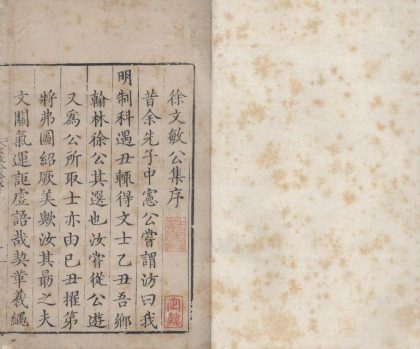 徐文敏公集序
昔余先子中憲公嘗謂汸曰我
明制科遇丑輒得文士乙丑吾鄉
翰林徐公其選也汝嘗從公遊
又為公所取士亦由己丑擢第
將弗圖紹厥美歟汝其最之夫
文關氣運詎虛語哉契華羲繩